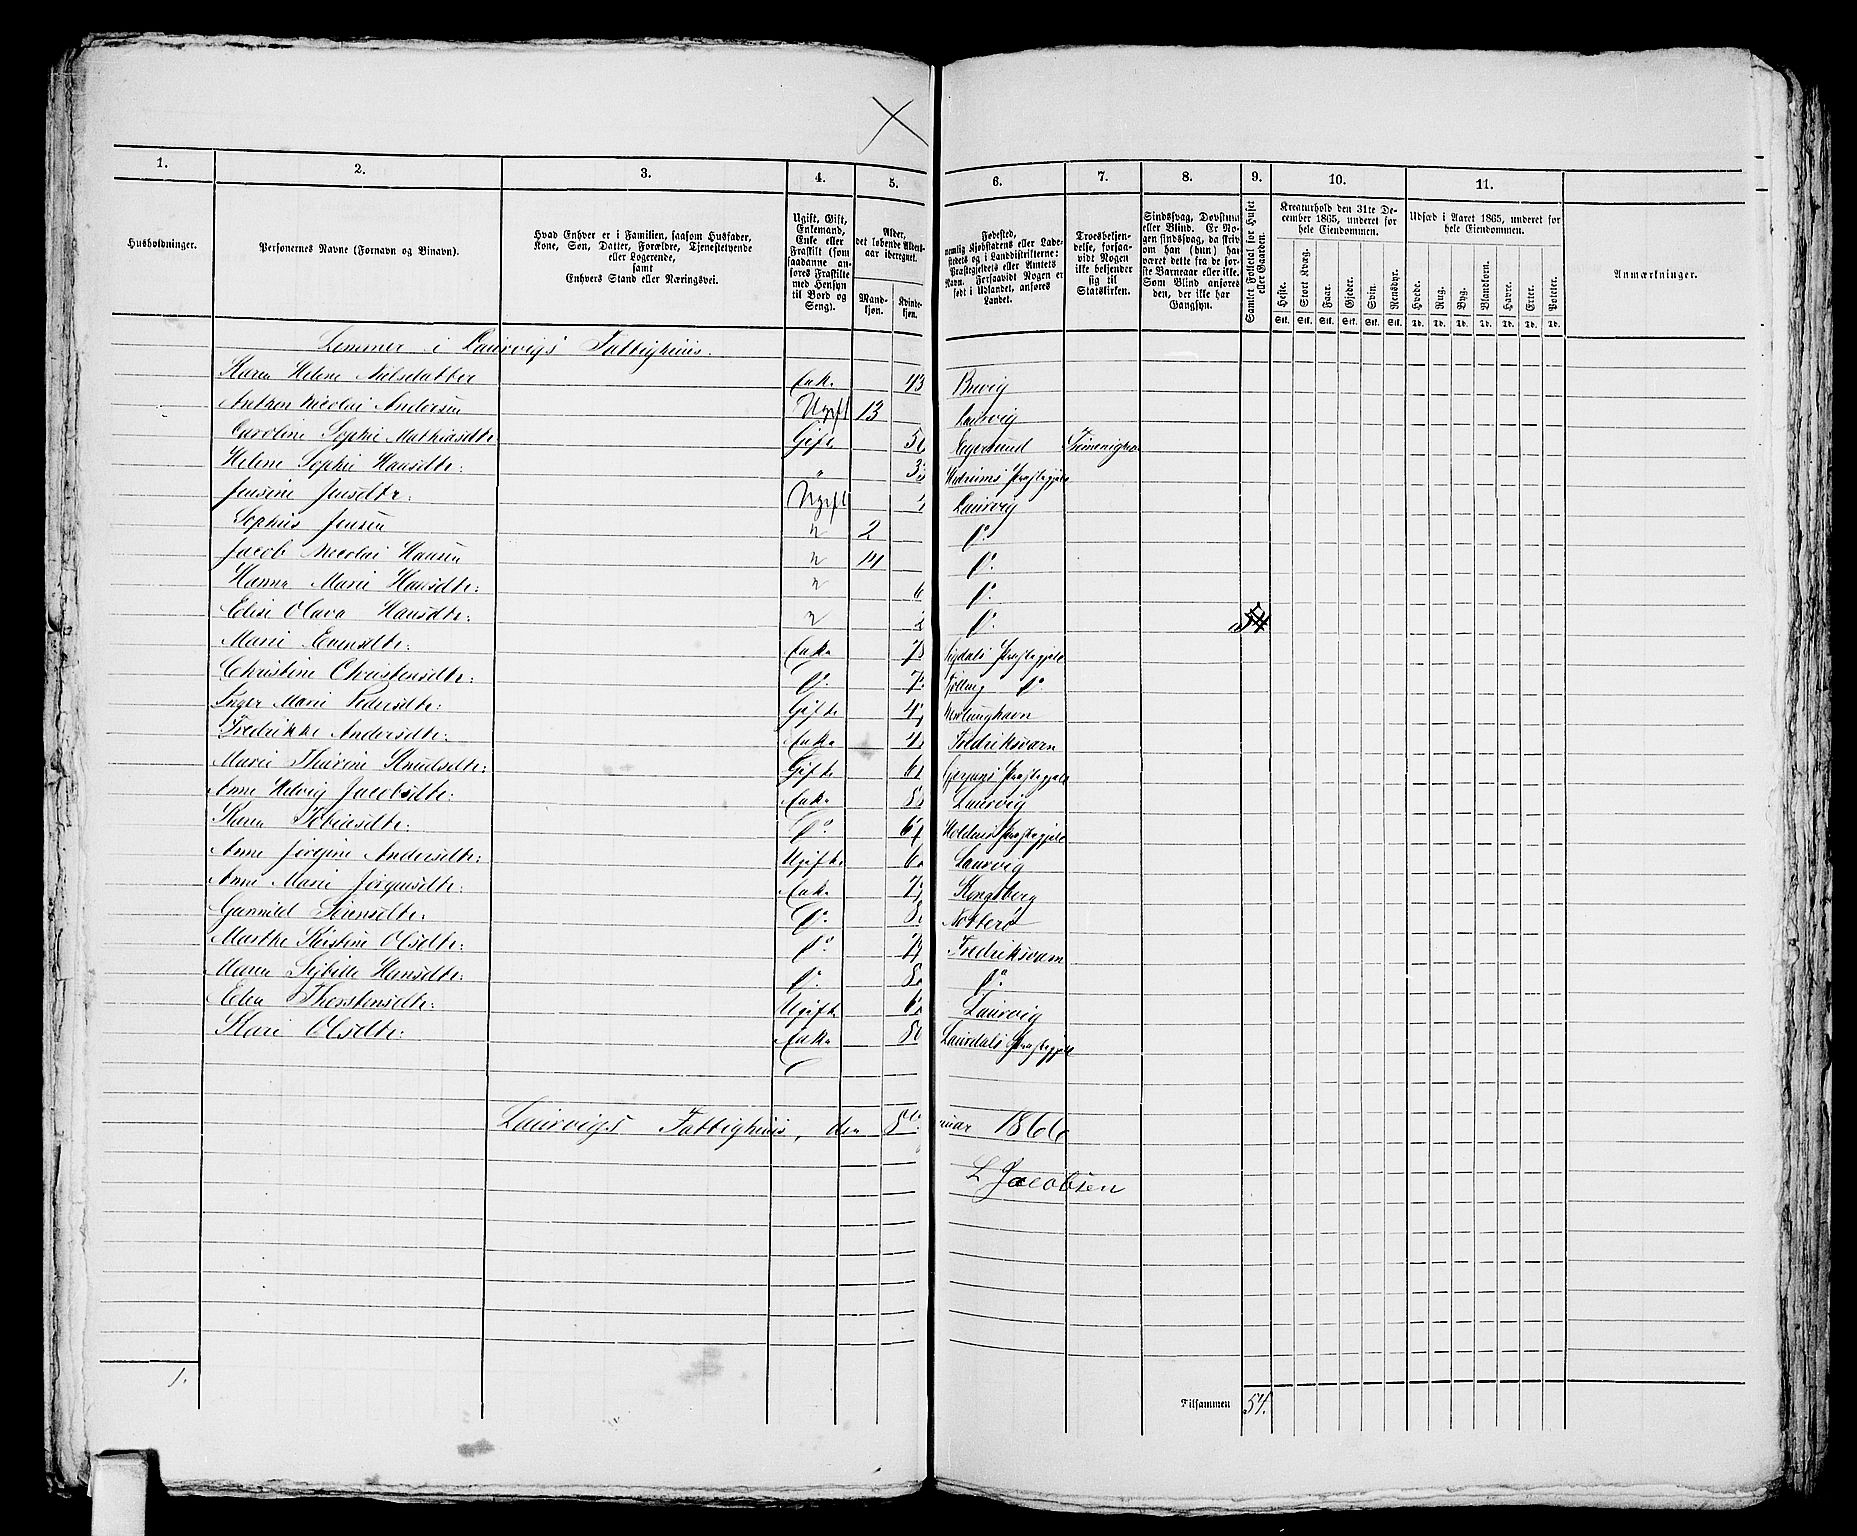 1. 2. 3. 4. 5. 6. 7. 8. 9. 10. 11.
Husholdninger.
Personernes Navne (Fornavn og Binavn).
Hvad Enhver er i Familien, saasom Husfader,
Kone, Søn, Datter, Forældre, Tjenestetyende
eller Logerende,
samt
Enhvers Stand eller Næringsvei.
Ugift, Gift,
Enkemand,
Enke eller
Fraskilt (som
saadanne an-
føres Fraskilte
med Hensyn
til Bord og
Seng).
Alder,
det løbende Alders-
aar iberegnet.
Mand-
kjøn.
Kvinde-
kjøn.
Fødested,
nemlig Kjøbstadens eller Lade-
stedets og i Landdistrikterne:
Præstegjeldets eller Amtets
Navn. Forsaavidt Nogen er
født i Udlandet, anføres
Landet.
Troesbekjen-
delse, forsaa-
vidt Nogen
ikke bekjender
sig til
Statskirken.
Sindssvag, Døvstum
eller Blind. Er No-
gen sindssvag, da skriv
om han (hun) har
været dette fra de før-
ste Barneaar eller ikke.
Som Blind anføres
den, der ikke har
Gangsyn.
Samlet Folketal for Huset
eller Gaarden.
Kreaturhold den 31te De-
cember 1865, underet for
hele Eiendommen.
Heste. Stort Kvæg. Faar. Gjeder. Svin. Rensdyr.
Stk. Stk. Stk. Stk. Stk. Stk.
Udsæd i Aaret 1865, underet for
hele Eiendommen.
Hvede. Rug. Byg. Blandkorn. Havre. Erter. Poteter.
Td. Td. Td. Td. Td. Td. Td.
Anmærkninger.
Lemmer i Laurvigs Fattighuus.
Karen Helene Nilsdatter Enke 43 Brevig
Anthon Nicolai Andersen Ugift 13 Laurvig
Caroline Sophie Mathiasdtr Gift Egersund
Helene Sophie Hansdtr: " Hedrums Præstegjeld
Jensine Jensdtr: Ugift Laurvig
Sophus Jensen " 2 do
Jacob Nicolai Hansen " 14 do
Hanna Marie Hansdtr: " 6 do
Elise Olava Hansdtr: " 2 do
Marie Evensdtr: Enke Sigdals Præstegjeld
Christine Christensdtr: do Tjølling do
Inger Marie Pedersdtr: Gift
Fredrikke Andersdtr: Enke Fredriksværn
Marie Thorine Knudsdtr: Gift Gjerpens Præstegjeld
Anne Hedvig Jacobsdtr: Enke Laurvig
Karen Tobiasdtr: do Holdens Præstegjeld
Anne Jørgine Andersdtr: Ugift Laurvig
Anne Marie Jørgensdtr: Enke Kongsberg
Gunnild Simensdtr: do Nøtterø
Marthe Kirstine Olsdtr: do Fredriksværn
Maren Sibille Hansdtr: do do
Elen Thorstensdtr: Ugift Laurvig
Kari Olsdtr: Enke Laurdals Præstegjeld
Laurvigs Fattighuus, den 8de nuar 1866
L Jacobsen
1.
Tilsammen 54.